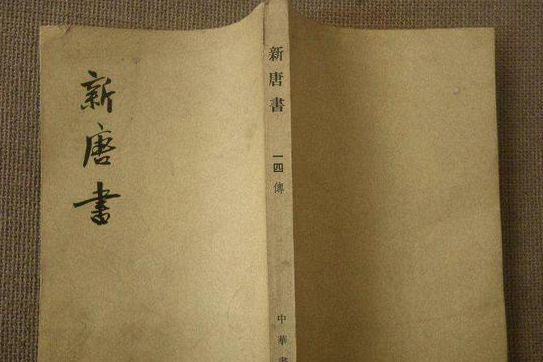 新唐書
新唐書
一四
傳
中華書